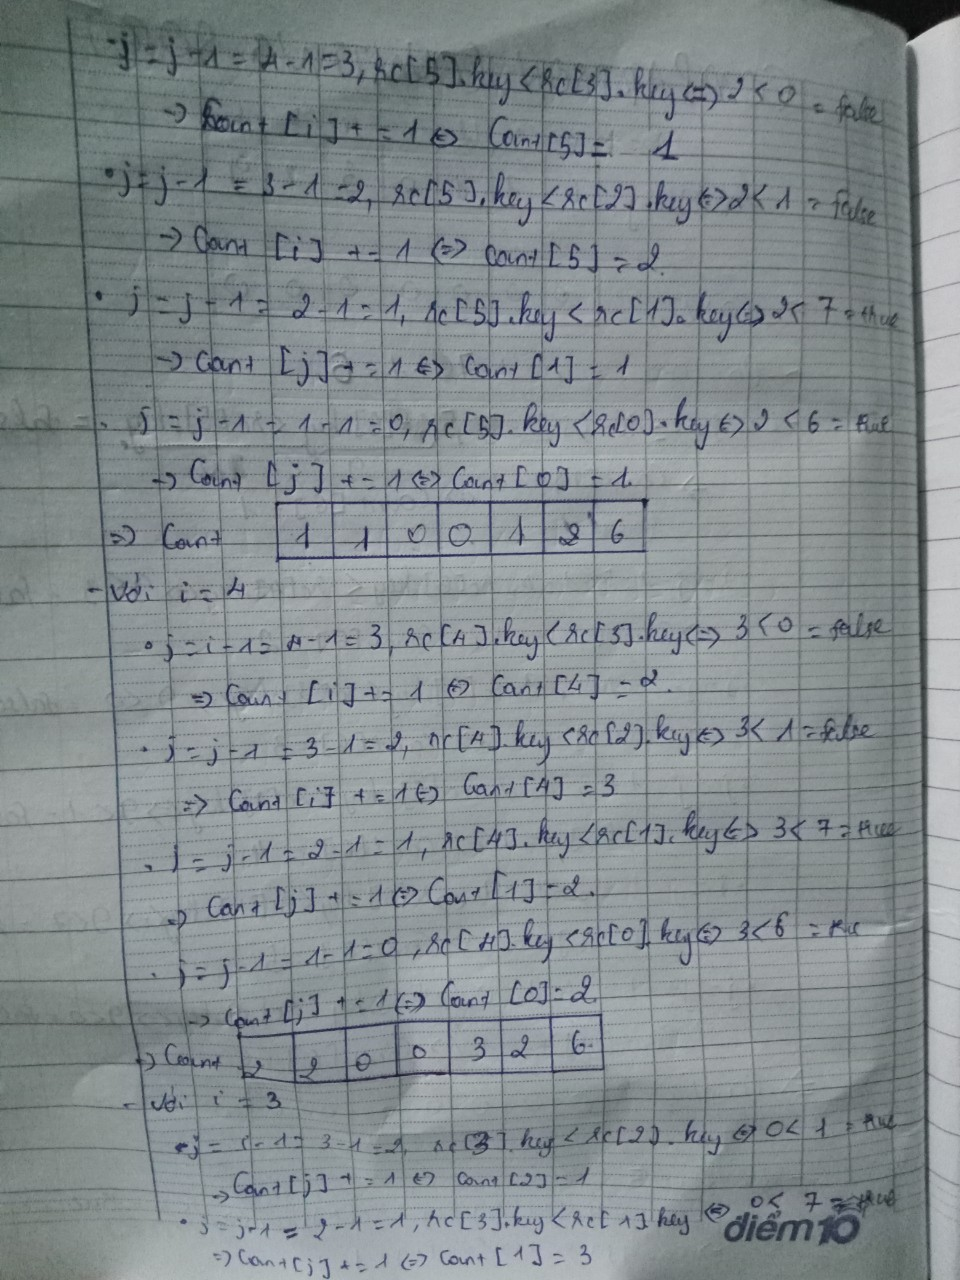 - j = j - 1 = 4 - 1 = 3, rc[5].key < rc[3].key <=> 2 < 0 = false
-> Count [i] += 1 <=> Count[5] = 1
• j = j - 1 = 3 - 1 = 2, rc[5].key < rc[2].key <=> 2 < 1 = false
-> Count [i] += 1 <=> Count [5] = 2.
• j = j - 1 = 2 - 1 = 1, rc[5].key < rc[1].key <=> 2 < 7 = true
-> Count [j] += 1 <=> Count [1] = 1
• j = j - 1 = 1 - 1 = 0, rc[5].key < rc[0].key <=> 2 < 6 = true
-> Count [j] += 1 <=> Count [0] = 1.
=> Count 1 1 0 0 1 2 6
- Với i = 4
• j = i - 1 = 4 - 1 = 3, rc[4].key < rc[3].key <=> 3 < 0 = false
=> Count [i] += 1 <=> Count [4] = 2.
• j = j - 1 = 3 - 1 = 2, rc[4].key < rc[2].key <=> 3 < 1 = false
=> Count [i] += 1 <=> Count [4] = 3
• j = j - 1 = 2 - 1 = 1, rc[4].key < rc[1].key <=> 3 < 7 = true
=> Count [j] += 1 <=> Count [1] = 2.
• j = j - 1 = 1 - 1 = 0, rc[4].key < rc[0].key <=> 3 < 6 = true
-> Count [j] += 1 <=> Count [0] = 2
-> Count 2 2 0 0 3 2 6
- Với i = 3
• j = i - 1 = 3 - 1 = 2, rc[3].key < rc[2].key <=> 0 < 1 = true
-> Count [j] += 1 <=> Count [2] = 1
• j = j - 1 = 2 - 1 = 1, rc[3].key < rc[1].key <=> 0 < 7 = true
=> Count [j] += 1 <=> Count [1] = 3
điểm 10